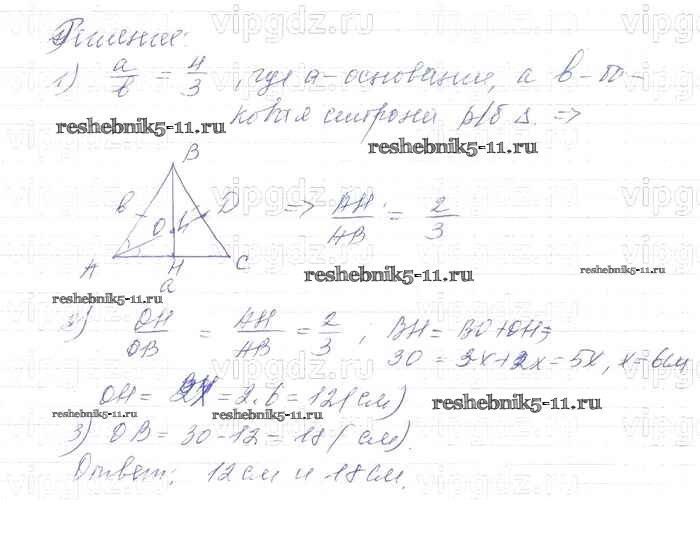 Решение:
1) a/b = 4/3, где a - основание, а b - бо-
ковая сторона р/б Δ. =>
reshebnik5-11.ru
reshebnik5-11.ru
B
b O D => AH/AB = 2/3
A H C
a
reshebnik5-11.ru
reshebnik5-11.ru
reshebnik5-11.ru
2) OH/OB = AH/AB = 2/3 ; BH = BO + OH =
30 = 3x + 2x = 5x, x = 6см
OH = 2x = 2·6 = 12 (см)
reshebnik5-11.ru
reshebnik5-11.ru
reshebnik5-11.ru
3) OB = 30 - 12 = 18 (см).
Ответ: 12 см и 18 см.